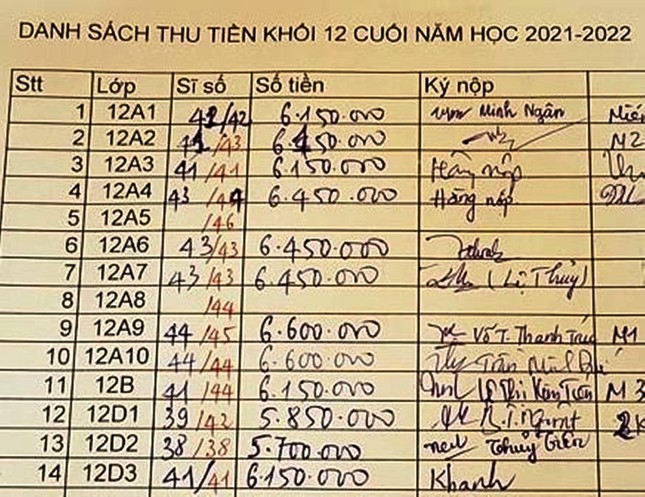 DANH SÁCH THU TIỀN KHỐI 12 CUỐI NĂM HỌC 2021-2022
Stt Lớp Sĩ số Số tiền Ký nộp
1 12A1 41/42 6.150.000 Minh Ngân
2 12A2 41/43 6.150.000 M2
3 12A3 41/41 6.150.000 nộp
4 12A4 43/44 6.450.000 Hằng nộp
5 12A5 /46
6 12A6 43/43 6.450.000
7 12A7 43/43 6.450.000 (Lệ Thủy)
8 12A8 /44
9 12A9 44/45 6.600.000 Võ T. Thanh M1
10 12A10 44/44 6.600.000 Trần
11 12B 41/44 6.150.000 M3
12 12D1 39/42 5.850.000
13 12D2 38/38 5.700.000 Thủy Tiên
14 12D3 41/41 6.150.000 Khanh